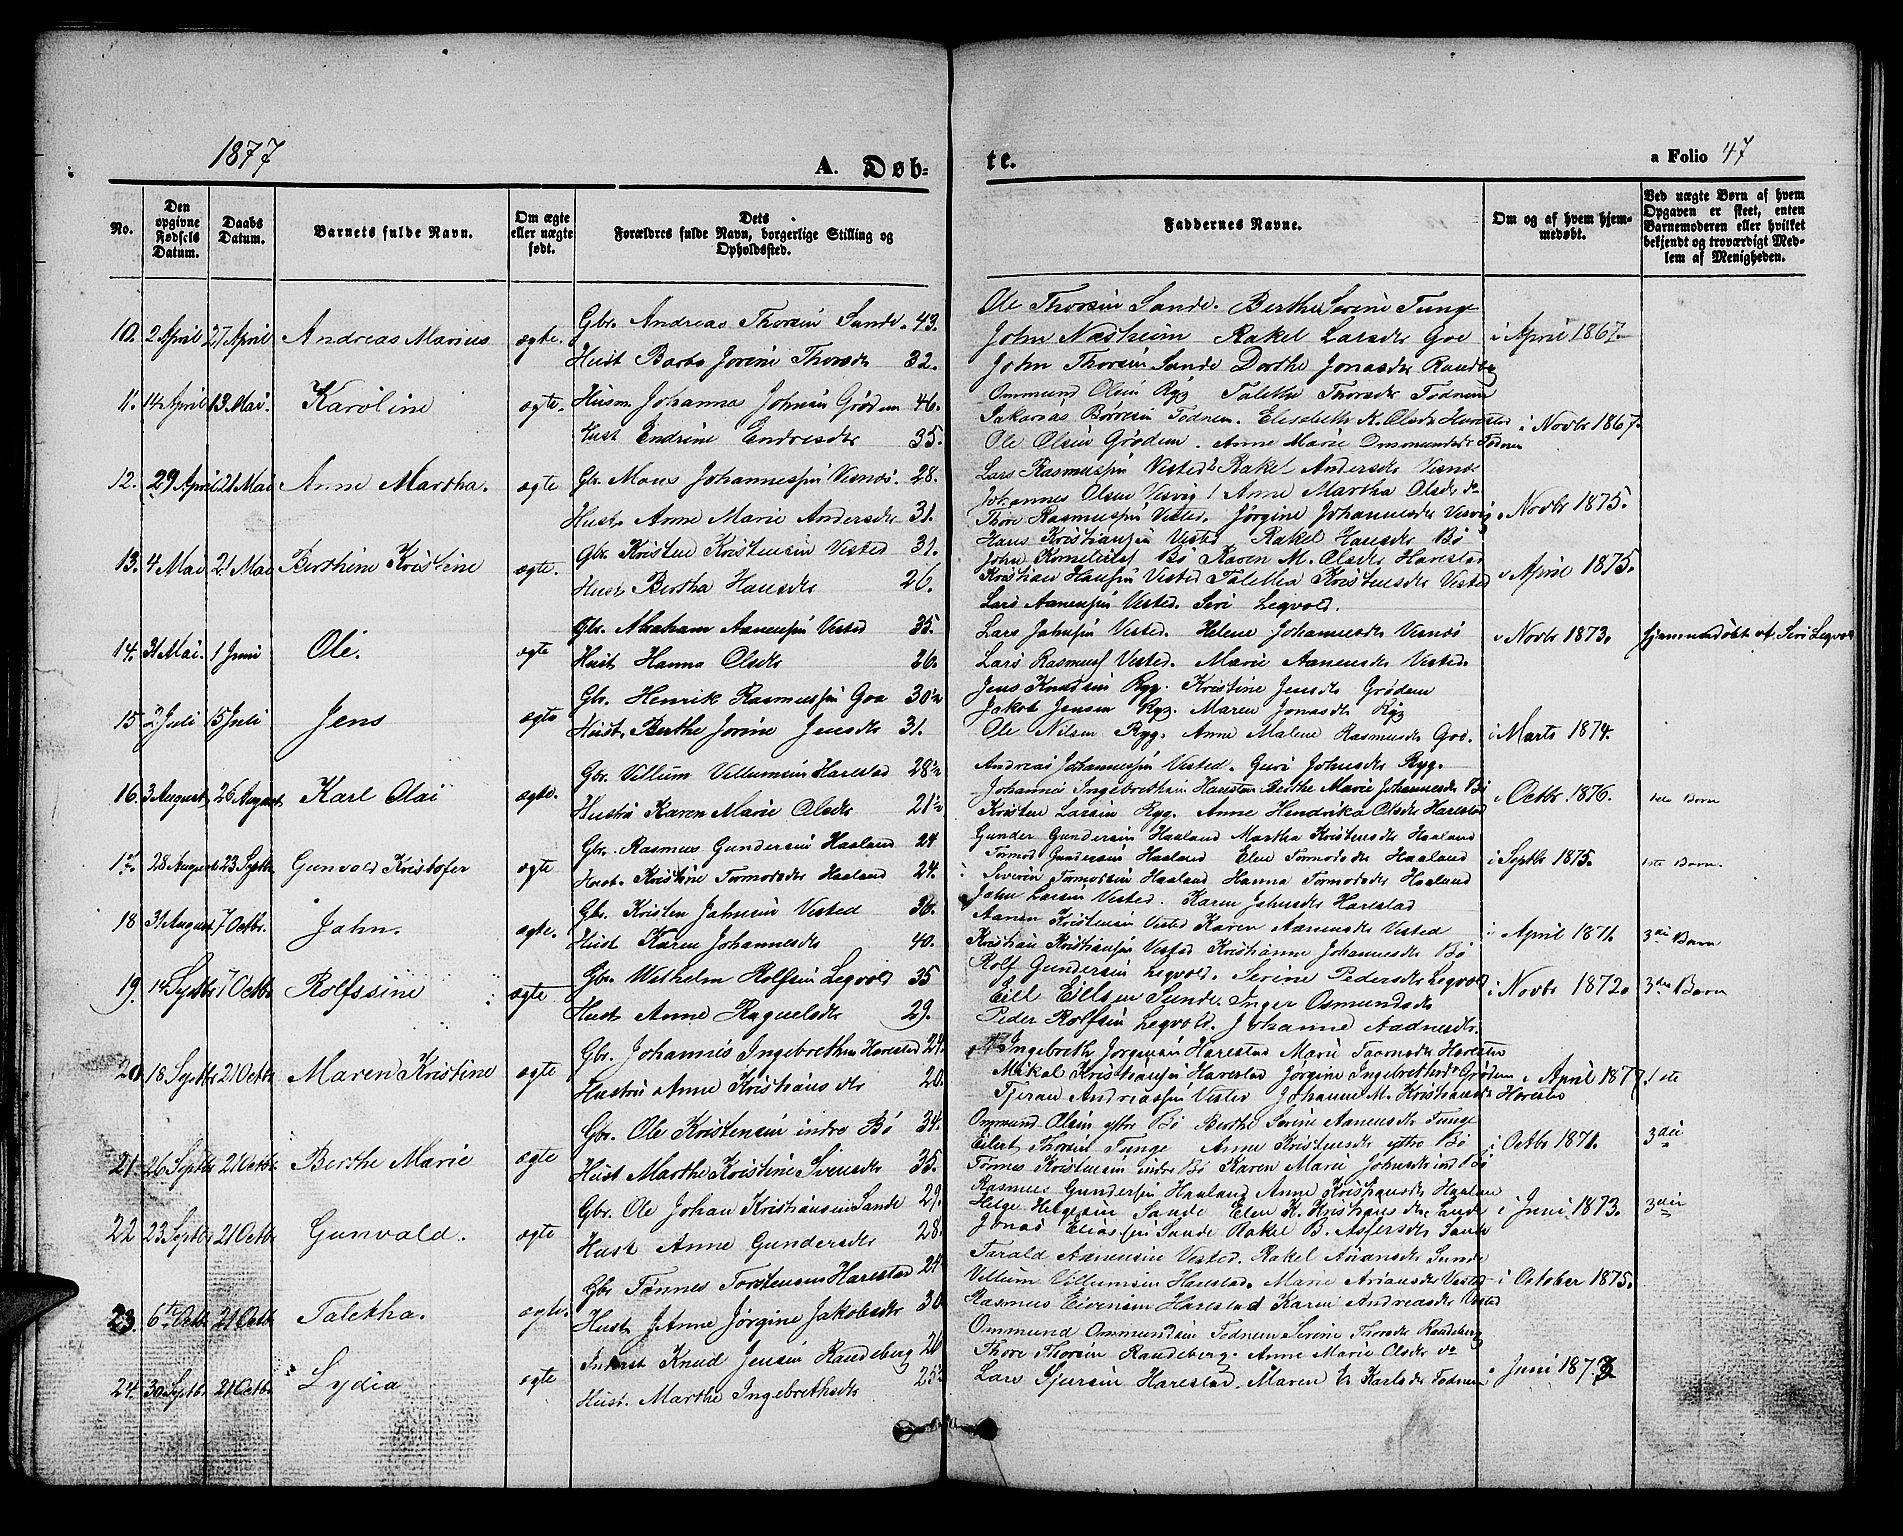 1877
A. Døb-
te.
a Folio 47
No.
Den opgivne Fødsels Datum.
Daabs Datum.
Barnets fulde Navn.
Om ægte eller uægte født.
Dets Forældres fulde Navn, borgerlige Stilling og Opholdssted.
Faddernes Navne.
Om og af hvem hjemmedøbt.
Ved uægte Børn af hvem Opgaven er skeet, enten Barnemoderen eller hvilket bekjendt og troværdigt Medlem af Menigheden.
10. 2 April 27 April Andreas Marius ægte. Gbr. Andreas Thorsen Sande. 43.
Hust Barbo Jorine Thorsdr 32.
Ole Thorsen Sande. Berthe Serine Tunge
John Næsheim Rakel Larsdr Goe i April 1867.
John Thorsen Sande Dorthe Jonasdr Randbg
11. 14 April 13 Mai. Karoline ægte. Husm. Johanna Johnsen Grødem 46.
Hust Endrine Endresdr 35.
Ommund Olsen Ryg Talethe Thorsdr Todnem
Sakarias Børresen Todnem. Elisabeth K. Olsdr Harestad i Novbr 1867.
Ole Olsen Grødem. Anne Marie Ommundsdr Todnem
12. 29 April 21 Mai Anne Martha. ægte Gbr. Mons Johannessen Visnes. 28.
Hust. Anne Marie Andersdr 31.
Lars Rasmussen Vested Rakel Andersdr Visnæs
Johannes Olsen Visvig Anne Martha Olsdr do
Thore Rasmussen Vested. Jørgine Johannesdr Visvig i Novbr 1875.
13. 4 Mai 21 Mai Berthine Kristine ægte. Gbr. Kristen Kristensen Vested 31.
Hust Bertha Hansdr 26.
Hans Kristiansen Vested Rakel Hansdr Bø
John Korneliusf Bø Karen M. Olsdr Harestad
Kristian Hansen Vested Taletha Kristensdr Vested i April 1875.
14. 31 Mai. 1 Juni Ole. ægte Gbr. Abraham Aanensen Vested 35.
Hust Hanna Olsdr 26.
Lars Aanensen Vested. Siri Legvold.
Lars Johnsen Vested. Helene Johannesdr Visnes i Novbr 1873. hjemmedøbt af Siri Legvold
Lars Rasmusf Vested. Marie Aanensdr Vested.
15 2 Juli 15 Juli Jens ægte Gbr. Henrik Rasmussen Goe 30½
Hust. Berthe Jorine Jensdr 31.
Jens Knudsen Ryg. Kristine Jensdr Grødem
Jakob Jensen Ryg. Maren Jonasdr Ryg
Ole Nilsen Ryg. Anne Malene Rasmusdr Goe. i Marts 1874.
16. 3 August 26 August Karl Olai ægte. Gbr. Villum Villumsen Harestad 28½
Hustru Karen Marie Olsdr 21½
Andreas Johannessen Vested. Guri Johnsdr Ryg.
Johannes Ingebrethsen Harestad Berthe Marie Johannesdr Bø
Kristen Larsen Ryg. Anne Hendrika Olsdr Harestad i Octbr. 1876. 1ste Barn
17. 28 August 23 Septbr. Gunvald Kristofer ægte Gbr. Rasmus Gundersen Haaland 24
Hust. Kristine Tormodsdr Haaland 24.
Gunder Gundersen Haaland Martha Kristensdr Haaland
Tormod Gundersen Haaland Elen Tormodsdr Haaland i Septbr 1875. 1ste Barn.
Severin Tormodsen Haaland Hanna Tormodsdr Haaland
18 31 August 7 Octbr. John. ægte. Gbr. Kristen Johnsen Vested 36.
Hust Karen Johannesdr 40.
John Larsen Vested. Karen Johnsdr Harestad
Aanen Kristensen Vested Karen Aanensdr Vested i April 1871. 3die Barn
Kristian Kristiansen Vested Kristianne Johannesdr Bø
19. 14 Septbr 7 Octbr Rolfssine ægte Gbr. Wilhelm Rolfsen Legvold 35
Hust Anne Raguelsdr 29.
Rolf Gundersen Legvold. Serine Pedersdr Legvold
Eill Eillsen Sunde. Inger Osmundsdr i Novbr 1872. 3die Barn
Peder Rolfsen Legvold. Johanne Aadnesdr.
20 18 Septbr 21 Octbr Maren Kristine ægte Gbr. Johannes Ingebrethsen Harestad 24.
Hustru Anne Kristiansdr 20.
Ingebreth Jørgensen Harestad Marie Taarnsdr Harestad
Mikal Kristiansen Harestad Jørgine Ingebrethsdr Grødem i April 1877. 1ste
Tjeran Andreassen Vested Johanne M. Kristiansdr Harestad
21. 26 Septbr 21 Octbr. Berthe Marie ægte Gbr. Ole Kristensen indre Bø 34.
Hust Marthe Kristine Svensdr 35.
Ommund Olsen ytre Bø Berthe Serine Aanensdr Tunge
Eilert Thorsen Tunge Anne Kristensdr ytre Bø i Octbr 1871. 3die
Tørnes Kristensen indre Bø Karen Marie Johnsdr ind. Bø
22 23 Septbr 21 Octbr. Gunvald. ægte Gbr. Ole Johan Kristiansen Sande 29.
Hust Anne Gundersdr 28.
Rasmus Gundersen Haaland Anne Kristiansdr Haaland
Helge Helgesen Sande Elen K. Kristiansdr. Sande i Juni 1873. 3die
Jonas Eliassen Sande Rakel B. Asfersdr Sande
23. 6te Octb 21 Octb Taletha. ægte. Gbr Tønnes Torstensen Harestad 24.
Hust Anne Jørgine Jakobsdr 30
Tarald Aanensen Vested. Rakel Ariansdr Sunde
Villum Villumsen Harestad. Marie Ariansdr Vested i October 1875.
Rasmus Eivensen Harestad Karen Andreasdr Vested
24. 30 Septbr. 21 Octbr. Lydia ægte Inderst Knud Jensen Randeberg 26
Hust. Marthe Ingebrethsdr 25½
Ommund Ommundsen Todnem Serine Thorsdr Randeberg
Thore Thorsen Randeberg. Anne Marie Olsdr do
Lars Sjursen Harestad. Maren E. Karlsdr Todnem i Juni 1873